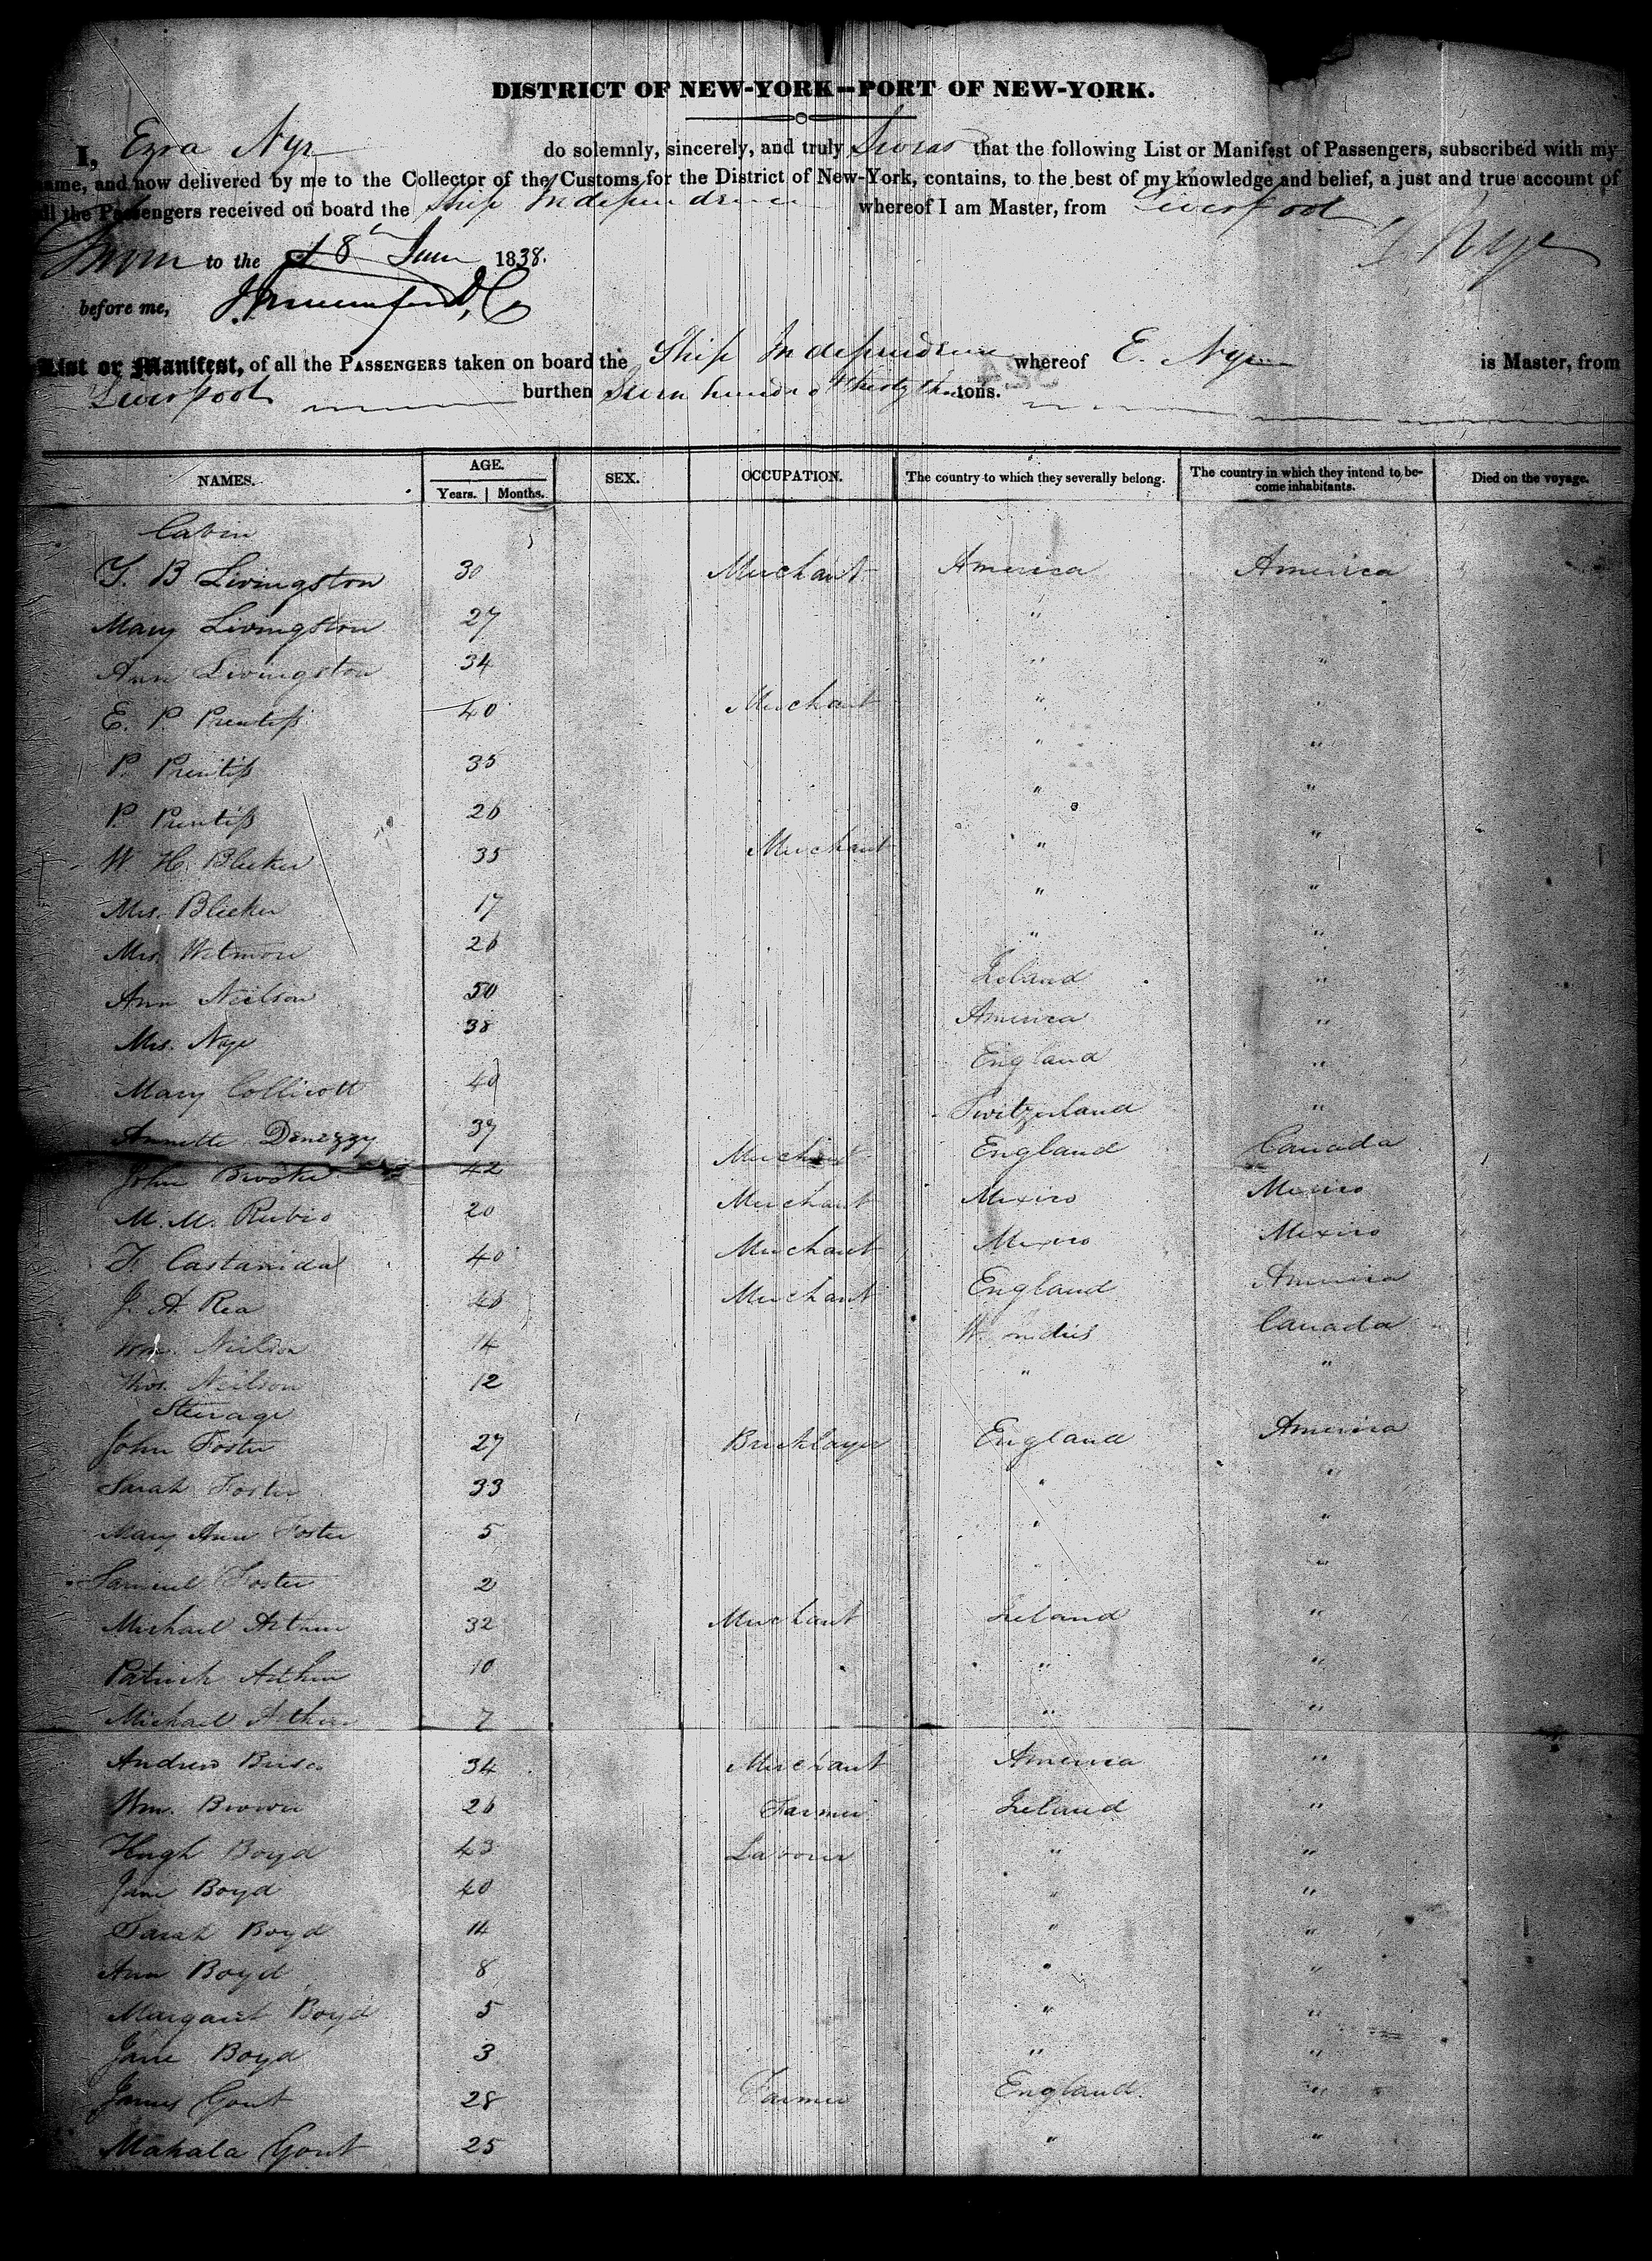 DISTRICT OF NEW-YORK—PORT OF NEW-YORK.
I, Ezra Nye do solemnly, sincerely, and truly Swear that the following List or Manifest of Passengers, subscribed with my
name, and now delivered by me to the Collector of the Customs for the District of New-York, contains, to the best of my knowledge and belief, a just and true account of
all the Passengers received on board the Ship Independence whereof I am Master, from Liverpool
Sworn to the 18 June 1838. E. Nye
before me,
List or Manifest, of all the PASSENGERS taken on board the Ship Independence whereof E. Nye is Master, from
Liverpool burthen Seven hundred & thirty three tons.
NAMES. AGE. Years. Months. SEX. OCCUPATION. The country to which they severally belong. The country in which they intend to become inhabitants. Died on the voyage.
Cabin
B Livingston 30 Merchant America America
Mary Livingston 27 "
Ann Livingston 34 " "
E. P. Prentiss 40 Merchant " "
P. Prentiss 35 " "
P. Prentiss 26 " "
W. H. Bleeker 35 Merchant " "
Mrs. Bleeker 17 " "
Mrs. Wetmore 26 " "
Ann Neilson 50 Ireland "
Mrs. Nye 38 America "
Mary Collicott 40 England "
Annette 39 Switzerland "
John 42 Merchant England Canada
M. M. Rubio 20 Merchant Mexico Mexico
Castanida 40 Merchant Mexico Mexico
J. A. Rea 46 Merchant England America
Wm. Neilson 14 W. Indies Canada
Thos. Neilson 12 " "
Steerage
John Foster 27 Bricklayer England America
Sarah Foster 33 " "
Mary Ann Foster 5 " "
Samuel Foster 2 " "
Michael Arthur 32 Merchant Ireland "
Patrick Arthur 10 " "
Michael Arthur 7 " "
Andrew 34 Merchant America "
Wm. Brown 26 Farmer Ireland "
Hugh Boyd 43 Labourer " "
Jane Boyd 40 " "
Sarah Boyd 14 " "
Ann Boyd 8 " "
Margaret Boyd 5 " "
Jane Boyd 3 " "
James Gout 28 Farmer England. "
Mahala Gout 25 " "